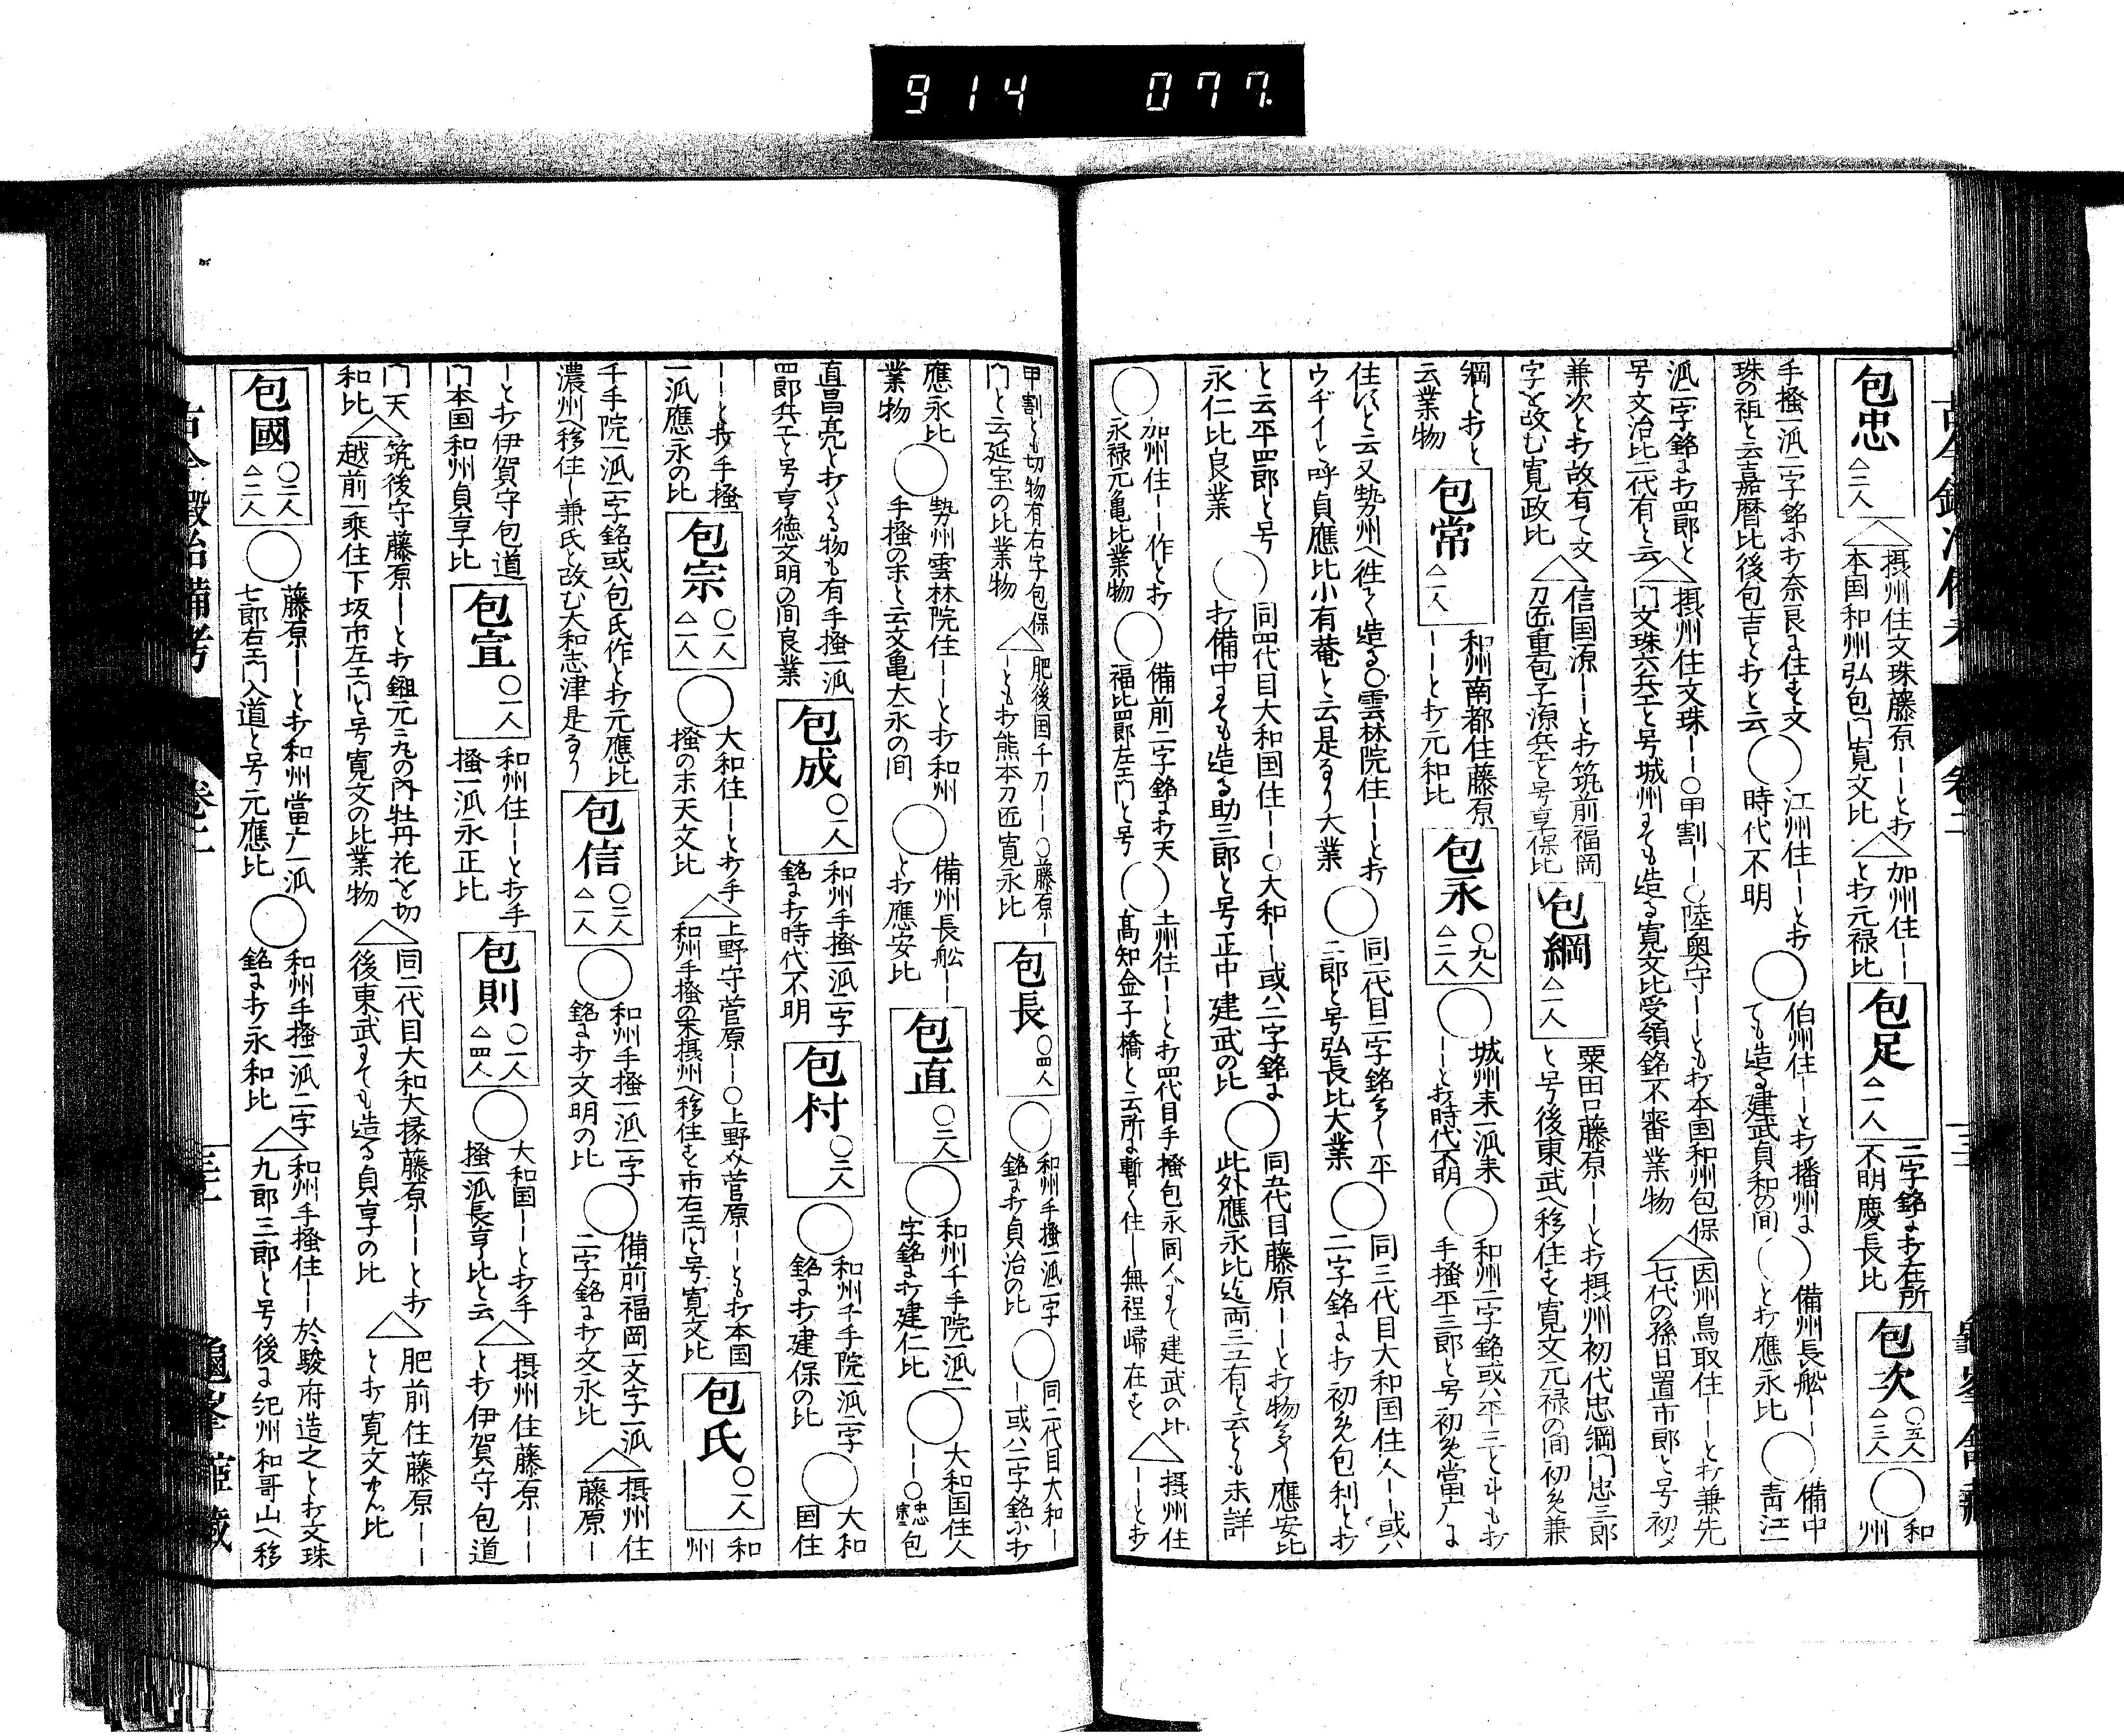 914 077.
包忠 △二人
△摂州住文珠藤原ーーと打
本国和州弘包門寛文比
△加州住ーー
と打元禄比
包足 △一人
二字銘に打在所
不明慶長比
包次 ○五人 △三人
○和
州
手掻一派二字銘に打奈良に住す文
珠の祖と云嘉暦比後包吉と打と云
○江州住ーーと打
時代不明
○伯州住ーーと打播州に
ても造る建武貞和の間
○備州長舩ーー
と打應永比
○備中
青江
派二字銘に打四郎と
号文治比二代有と云
△摂州住文珠ーー○甲割ーー○陸奥守ーーとも打本国和州包保
門文珠六兵エと号城州にても造る寛文比受領銘不審業物
△因州鳥取住ーーと打兼先
七代の孫日置市郎と号初メ
兼次と打故有て文
字を改む寛政比
△信国源ーーと打筑前福岡
刀匠重包子源兵エと号享保比
包綱 △一人
粟田口藤原ーーと打摂州初代忠綱門忠三郎
と号後東武へ移住す寛文元禄の間初め兼
綱と打と
云業物
包常 △一人
和州南都住藤原
ーーと打元和比
包永 ○九人 △二人
○城州来一派来
ーーと打時代不明
○和州二字銘或ハ平三とヰも打
手掻平三郎と号初め當广に
住すと云又勢州へ往て造る○雲林院住ーーと打
ウヂイと呼貞應比小有菴と云是なり大業
○同二代目二字銘多し平
三郎と号弘長比大業
○同三代目大和国住人ーー或ハ
二字銘に打初め包利と打
と云平四郎と号
永仁比良業
○同四代目大和国住ーー○大和ーー或ハ二字銘に
打備中にても造る助三郎と号正中建武の比
○同五代目藤原ーーと打物多し應安比
此外應永比迄両三工有と云とも未詳
○加州住ーー作と打
永禄元亀比業物
○備前二字銘に打天
福比四郎左エ門と号
○土州住ーーと打四代目手掻包永同人にて建武の比
高知金子橋と云所に暫く住し無程帰在す
△摂州住
ーーと打
甲割とも切物有右字包保
門と云延宝の比業物
△肥後国千刀ーー○藤原ー
ーとも打熊本刀匠寛永比
包長 ○四人
○和州手掻一派二字
銘に打貞治の比
○同二代目大和ー
ー或ハ二字銘に打
應永比
業物
○勢州雲林院住ーーと打和州
手掻の末と云文亀大永の間
○備州長舩ーー
と打應安比
包直 ○三人
○和州千手院一派二
字銘に打建仁比
○大和国住人
ーー○忠宗包
直昌亮と打たる物も有手掻一派
四郎兵エと号亨徳文明の間良業
包成 ○一人
和州手掻一派二字
銘に打時代不明
包村 ○二人
○和州千手院一派二字
銘に打建保の比
○大和
国住
ーーと打手掻
一派應永の比
包宗 ○一人 △一人
○大和住ーーと打手
掻の末天文比
△上野守菅原ーー○上野介菅原ーーとも打本国
和州手掻の末摂州へ移住す市右エ門と号寛文比
包氏 ○一人
和
州
千手院一派二字銘或ハ包氏作と打元應比
濃州へ移住し兼氏と改む大和志津是なり
包信 ○二人 △一人
○和州手掻一派二字
銘に打文明の比
○備前福岡一文字一派
二字銘に打文永比
△摂州住
藤原ー
ーと打伊賀守包道
門本国和州貞享比
包宣 ○一人
和州住ーーと打手
掻一派永正比
包則 ○一人 △四人
○大和国ーーと打手
掻一派長亨比と云
△摂州住藤原ーー
と打伊賀守包道
門天
和比
△筑後守藤原ーーと打鎺元二九の内牡丹花を切
越前一乗住下坂市左エ門と号寛文の比業物
△同二代目大和大掾藤原ーーと打
後東武にても造る貞享の比
△肥前住藤原ーー
と打寛文比
包國 ○二人 △二人
○藤原ーーと打和州當广一派
七郎右エ門入道と号元應比
○和州手掻一派二字
銘に打永和比
△和州手掻住ーー於駿府造之と打文珠
九郎三郎と号後に紀州和哥山へ移
古今鍛冶備考 卷二